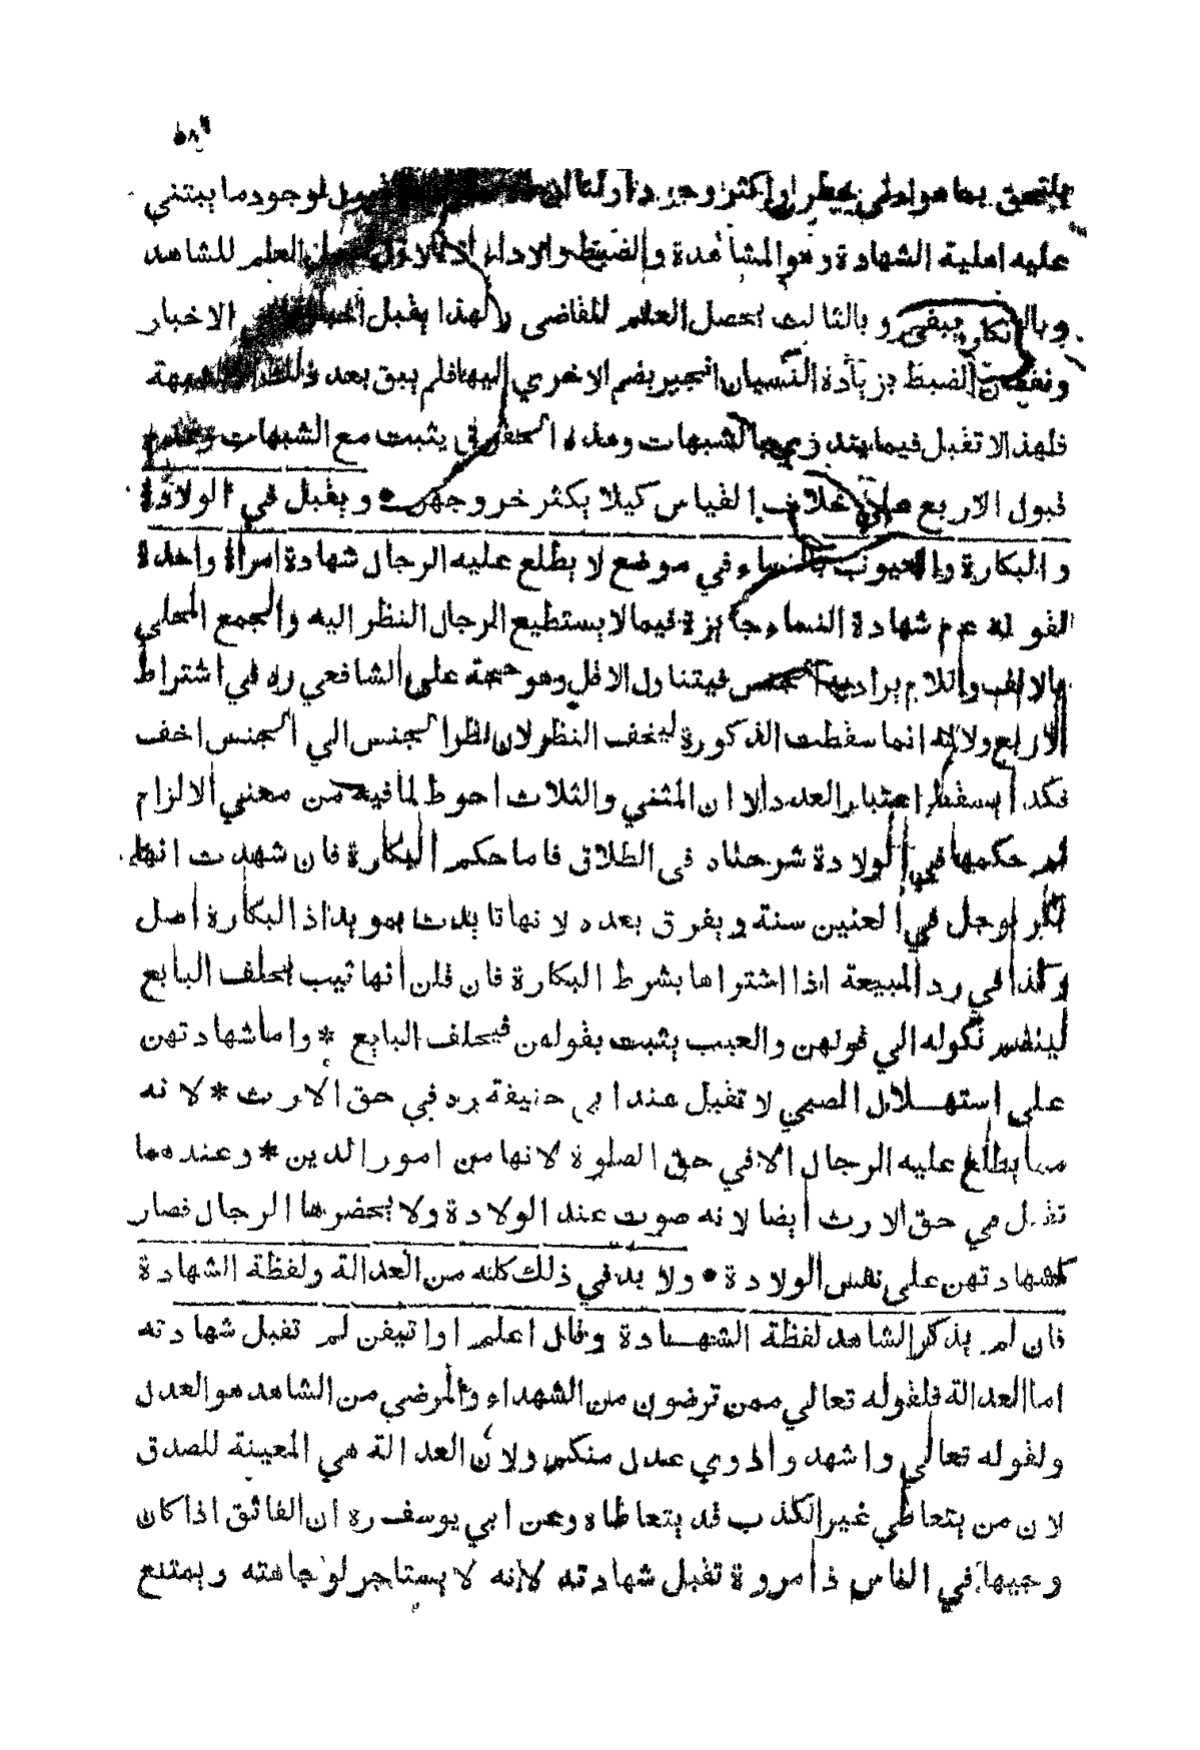 ٥٨٩
يلتحق بما هو اعظم خطرا واكثر وجودا ولنا ان لوجود ما يبتني
عليه اهلية الشهادة وهو المشاهدة والضبط والاداء اذ بالاول يحصل العلم للشاهد
يبقى وبالثالث يحصل العلم للقاضى ولهذا يقبل الاخبار
ونقصان الضبط بزيادة النسيان انجبر بضم الاخرى اليها فلم يبق بعد ذلك الا الشبهة
فلهذا لا تقبل فيما يندرئ بالشبهات وهذه الحقوق يثبت مع الشبهات وعدم
قبول الاربع على خلاف القياس كيلا يكثر خروجهن • ويقبل في الولادة
والبكارة والعيوب بالنساء في موضع لا يطلع عليه الرجال شهادة امراة واحدة
لقوله عم شهادة النساء جايزة فيما لا يستطيع الرجال النظر اليه والجمع المحلى
بالالف واللام يراد به الجنس فيتناول الاقل وهو حجة على الشافعي ره في اشتراط
الاربع ولانه انما سقطت الذكورة ليخف النظر لان نظر الجنس الي الجنس اخف
فكذا يسقط اعتبار العدد الا ان المثنى والثلاث احوط لما فيه من معني الالزام
ثم حكمها في الولادة شرحناه في الطلاق فاما حكم البكارة فان شهدت انها
بكر يوجل في العنين سنة ويفرق بعده لانها تايدت بمويد اذ البكارة اصل
وكذا في رد المبيعة اذا اشتراها بشرط البكارة فان قلن انها ثيب يحلف البايع
لينضم نكوله الي قولهن والعيب يثبت بقولهن فيحلف البايع * واما شهادتهن
علي استهلال الصبي لا تقبل عند ابي حنيفة ره في حق الارث * لانه
مما يطلع عليه الرجال الا في حق الصلوة لانها من امور الدين * وعندهما
تقبل في حق الارث ايضا لانه صوت عند الولادة ولا يحضرها الرجال فصار
كشهادتهن علي نفس الولادة • ولا بد في ذلك كله من العدالة ولفظة الشهادة
فان لم يذكر الشاهد لفظة الشهادة وقال اعلم او اتيقن لم تقبل شهادته
اما العدالة فلقوله تعالي ممن ترضون من الشهداء والمرضي من الشاهد هو العدل
ولقوله تعالي واشهدوا ذوي عدل منكم ولان العدالة هي المعينة للصدق
لان من يتعاطي غير الكذب قد يتعاطاه وعن ابي يوسف ره ان الفاسق اذا كان
وجيها في الناس ذا مروة تقبل شهادته لانه لا يستاجر لوجاهته ويمتنع